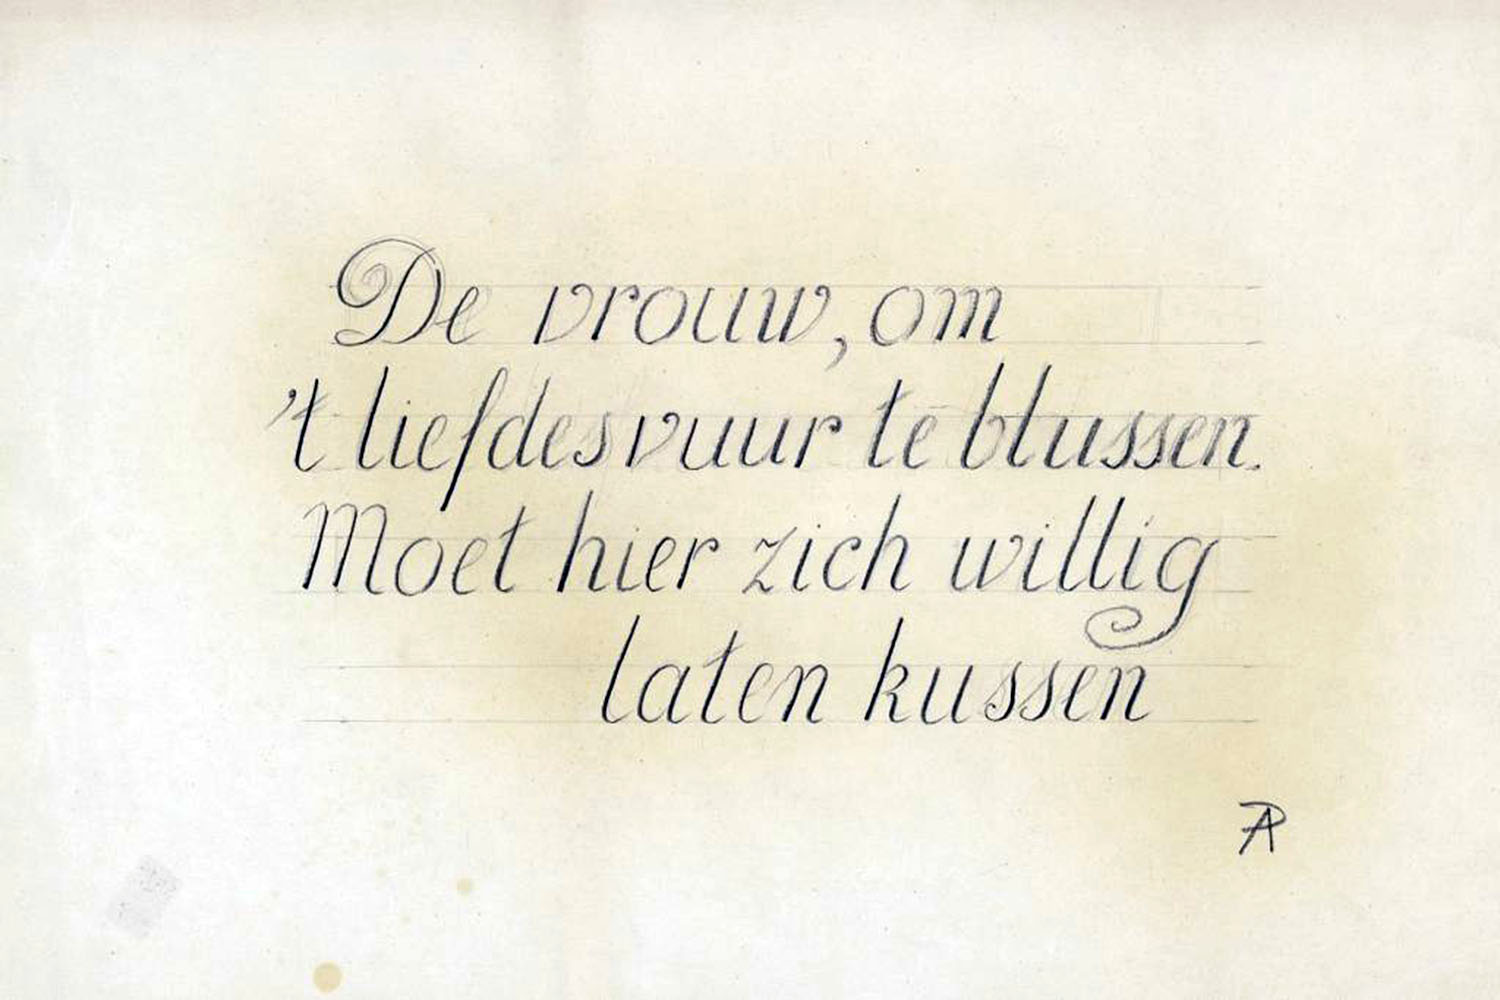 De vrouw, om
't liefdesvuur te blussen.
Moet hier zich willig
laten kussen